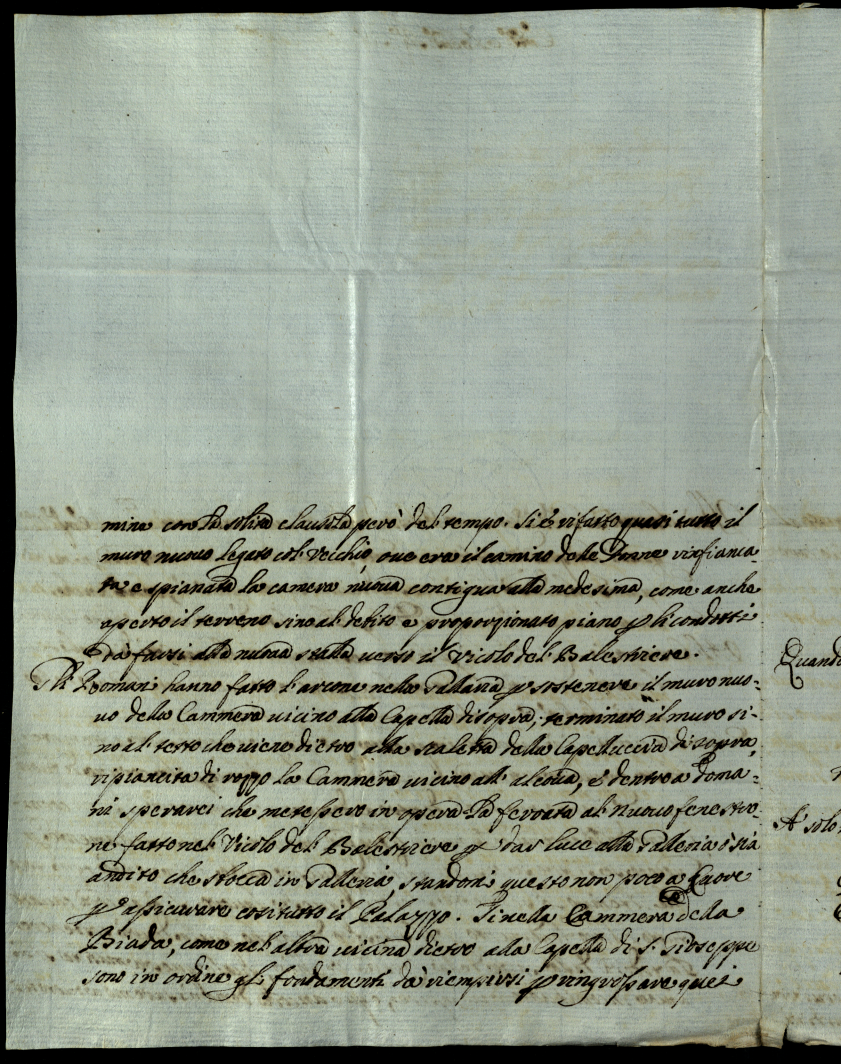 mine con la solita clausola però del tempo. Si è rifatto quasi tutto il
muro nuouo legato col Vecchio, oue era il camino delle Donne rinfianca-
ta e spianata la camera nuoua contigua alla medesima, come anche
aperto il terreno sino al debito e proporzionato piano p li condotti
da farsi alla nuoua stalla uerso il Vicolo del Balestriere.
Romani hanno fatto l'arcone nella Gallaria p sostenere il muro nuo-
uo della Cammera uicino alla Capella di sopra; terminato il muro si-
no al tetto che uiene dietro alla scaletta della Capelluccia di sopra,
ripiancita di rozzo la Cammera uicino all' alcoua, e dentro a doma-
ni sperarei che metessero in opera la ferrata al nuouo fenestro-
ne fatto nel Vicolo del Balestriere p dar luce alla Galleria o sia
andito che sbocca in Galleria, standomi questo non poco a Cuore
p assicurare cosi tutto il Palazzo. Si nella Cammera della
Biada, come nel altra uicina dietro alla Capella di S. Gioseppe
sono in ordine gl fondamenti da riempirsi p ringrossare quei
Quando
A' solo